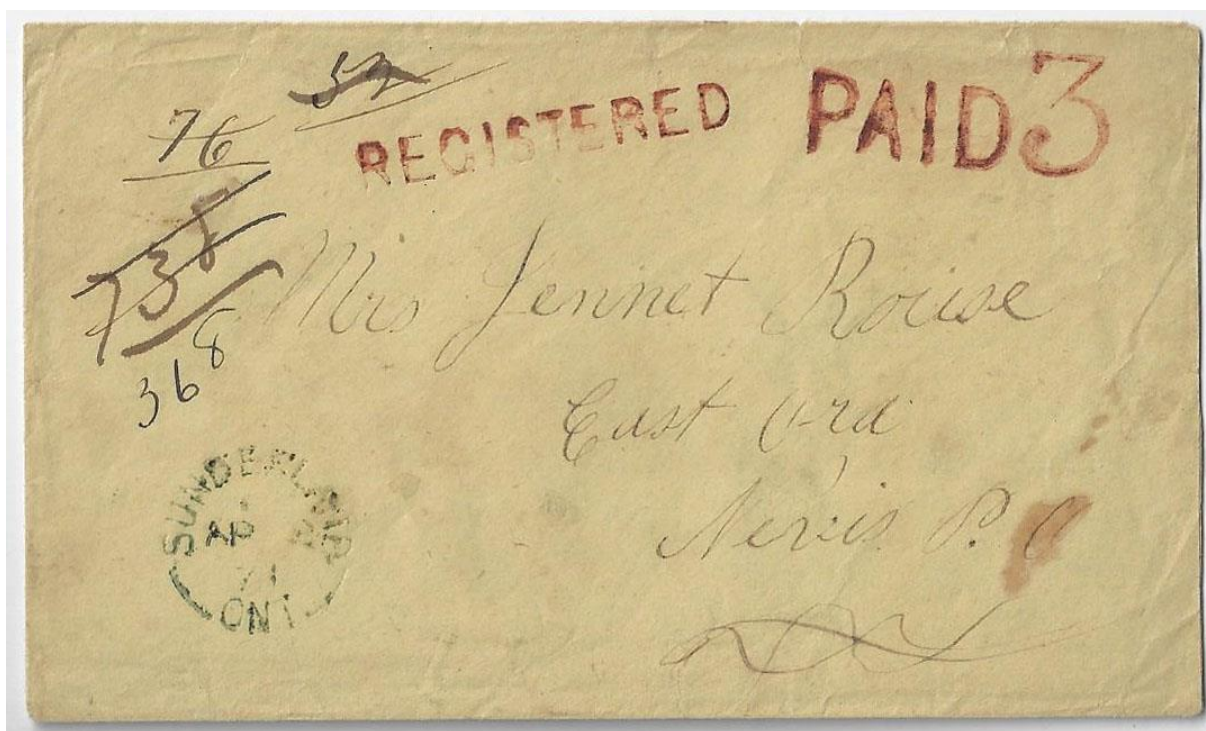 52
76
REGISTERED PAID 3
738
368
Mrs Jennet Rouse
East Oro
Nevis P. O
SUNDERLAND
AP
71
ONT